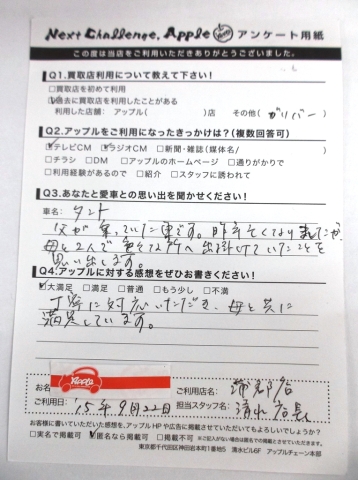 Next Challenge, Apple アンケート用紙
この度は当店をご利用いただきありがとうございました。
Q1.買取店利用について教えて下さい!
□買取店を初めて利用
☑過去に買取店を利用したことがある
利用した店舗: アップル( )店 その他( ガリバー )
Q2.アップルをご利用になったきっかけは?(複数回答可)
☑テレビCM ☑ラジオCM □新聞・雑誌(媒体名/ )
□チラシ □DM □アップルのホームページ □通りがかりで
□利用経験があるので □紹介 □スタッフに誘われて
Q3.あなたと愛車との思い出を聞かせください!
車名: タント
父が乗っていた車です。昨年亡くなりましたが、
母と2人で色々な所へ出掛けていたことを
思い出します。
Q4.アップルに対する感想をぜひお書きください!
☑大満足 □満足 □普通 □もう少し □不満
丁寧に対応いただき、母と共に
満足しています。
お名
Apple
ご利用店名: 蒲郡店
ご利用日: '15年9月22日 担当スタッフ名: 清水店長
お客様に書いていただいた感想を、アップルHPや広告に掲載させていただいてもよろしいでしょうか?
□実名で掲載可 ☑匿名なら掲載可 □掲載不可 ※ご記入がない場合は匿名での掲載とさせていただきます。
東京都千代田区神田岩本町1番地5 清水ビル6F アップルチェーン本部